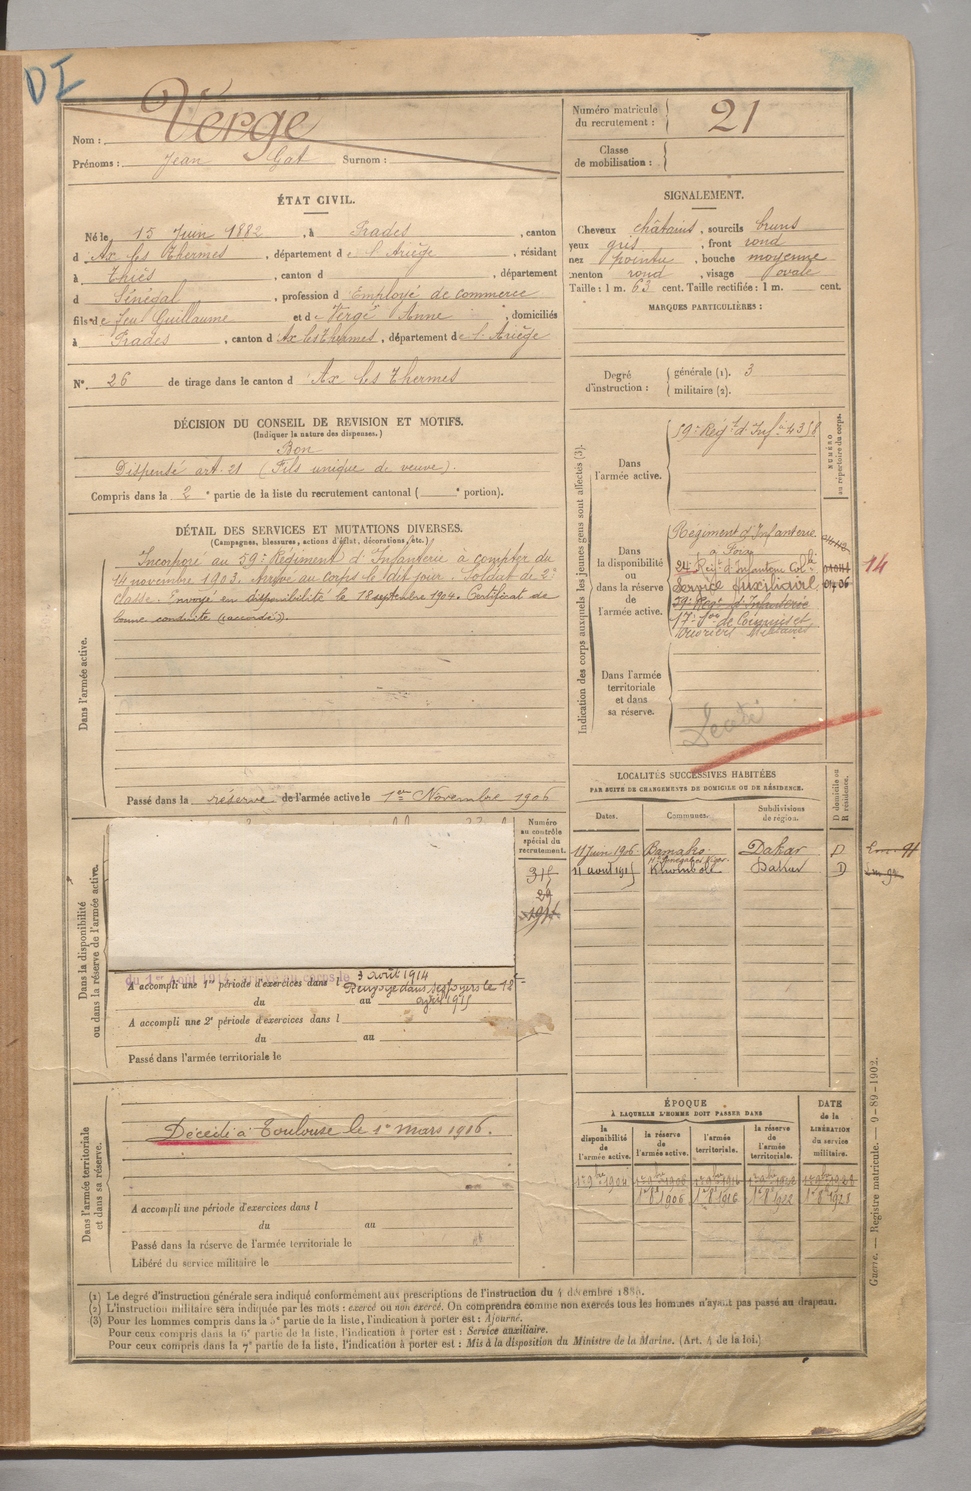 DI
Nom : Vergé
Prénoms : Jean Surnom :
Numéro matricule du recrutement : 21
Classe de mobilisation :
ÉTAT CIVIL.
Né le 15 Juin 1882, à Prades, canton
d Ax les Thermes, département de l'Ariège, résidant
à Thiès, canton d , département
d Sénégal, profession d Employé de commerce
fils de feu Guillaume et de Vergé Anne, domiciliés
à Prades, canton d Ax les Thermes, département de l'Ariège
N° 26 de tirage dans le canton d Ax les Thermes
SIGNALEMENT.
Cheveux châtains, sourcils bruns
yeux gris, front rond
nez pointu, bouche moyenne
menton rond, visage ovale
Taille : 1 m. 63 cent. Taille rectifiée : 1 m. cent.
MARQUES PARTICULIÈRES :
Degré d'instruction : générale (1). 3
militaire (2).
DÉCISION DU CONSEIL DE REVISION ET MOTIFS.
(Indiquer la nature des dispenses.)
Bon
Dispensé art. 21 (Fils unique de veuve).
Compris dans la 2e partie de la liste du recrutement cantonal ( e portion).
DÉTAIL DES SERVICES ET MUTATIONS DIVERSES.
(Campagnes, blessures, actions d'éclat, décorations, etc.)
Dans l'armée active.
Incorporé au 59e Régiment d'Infanterie à compter du
14 novembre 1903. Arrivé au corps le dit jour. Soldat de 2e
classe. Envoyé en disponibilité le 18 septembre 1904. Certificat de
bonne conduite (accordé).
Passé dans la réserve de l'armée active le 1er Novembre 1906
Indication des corps auxquels les jeunes gens sont affectés (3).
NUMÉRO au répertoire du corps.
Dans l'armée active.
59e Régt d'Infie 4358
Dans la disponibilité ou dans la réserve de l'armée active.
Régiment d'Infanterie
à Foix
Régt d'Infanterie Col
Service Auxiliaire
59e Régt d'Infanterie
17e Son de Commis et
Ouvriers Militaires
14
Dans l'armée territoriale et dans sa réserve.
LOCALITÉS SUCCESSIVES HABITÉES
PAR SUITE DE CHANGEMENTS DE DOMICILE OU DE RÉSIDENCE.
Dates. Communes. Subdivisions de région. D domicile ou R résidence.
11 Juin 1906 Bamako Dakar D
11 août 1915 Khombole Dakar D
Dans la disponibilité ou dans la réserve de l'armée active.
Numéro au contrôle spécial du recrutement.
3 août 1914
A accompli une 1re période d'exercices dans
Renvoyé dans ses foyers le 12
avril 1915
du au
A accompli une 2e période d'exercices dans l
du au
Passé dans l'armée territoriale le
Dans l'armée territoriale et dans sa réserve.
Décédé à Toulouse le 1er mars 1916.
A accompli une période d'exercices dans l
du au
Passé dans la réserve de l'armée territoriale le
Libéré du service militaire le
ÉPOQUE
À LAQUELLE L'HOMME DOIT PASSER DANS
la disponibilité de l'armée active. la réserve de l'armée active. l'armée territoriale. la réserve de l'armée territoriale.
DATE de la LIBÉRATION du service militaire.
1er 8 1906 1er 8 1916 1er 8 1922 1er 8 1928
Guerre. — Registre matricule. — 9-89-1902.
(1) Le degré d'instruction générale sera indiqué conformément aux prescriptions de l'instruction du 4 décembre 1886.
(2) L'instruction militaire sera indiquée par les mots : exercé ou non exercé. On comprendra comme non exercés tous les hommes n'ayant pas passé au drapeau.
(3) Pour les hommes compris dans la 5e partie de la liste, l'indication à porter est : Ajourné.
Pour ceux compris dans la 6e partie de la liste, l'indication à porter est : Service auxiliaire.
Pour ceux compris dans la 7e partie de la liste, l'indication à porter est : Mis à la disposition du Ministre de la Marine. (Art. 4 de la loi.)